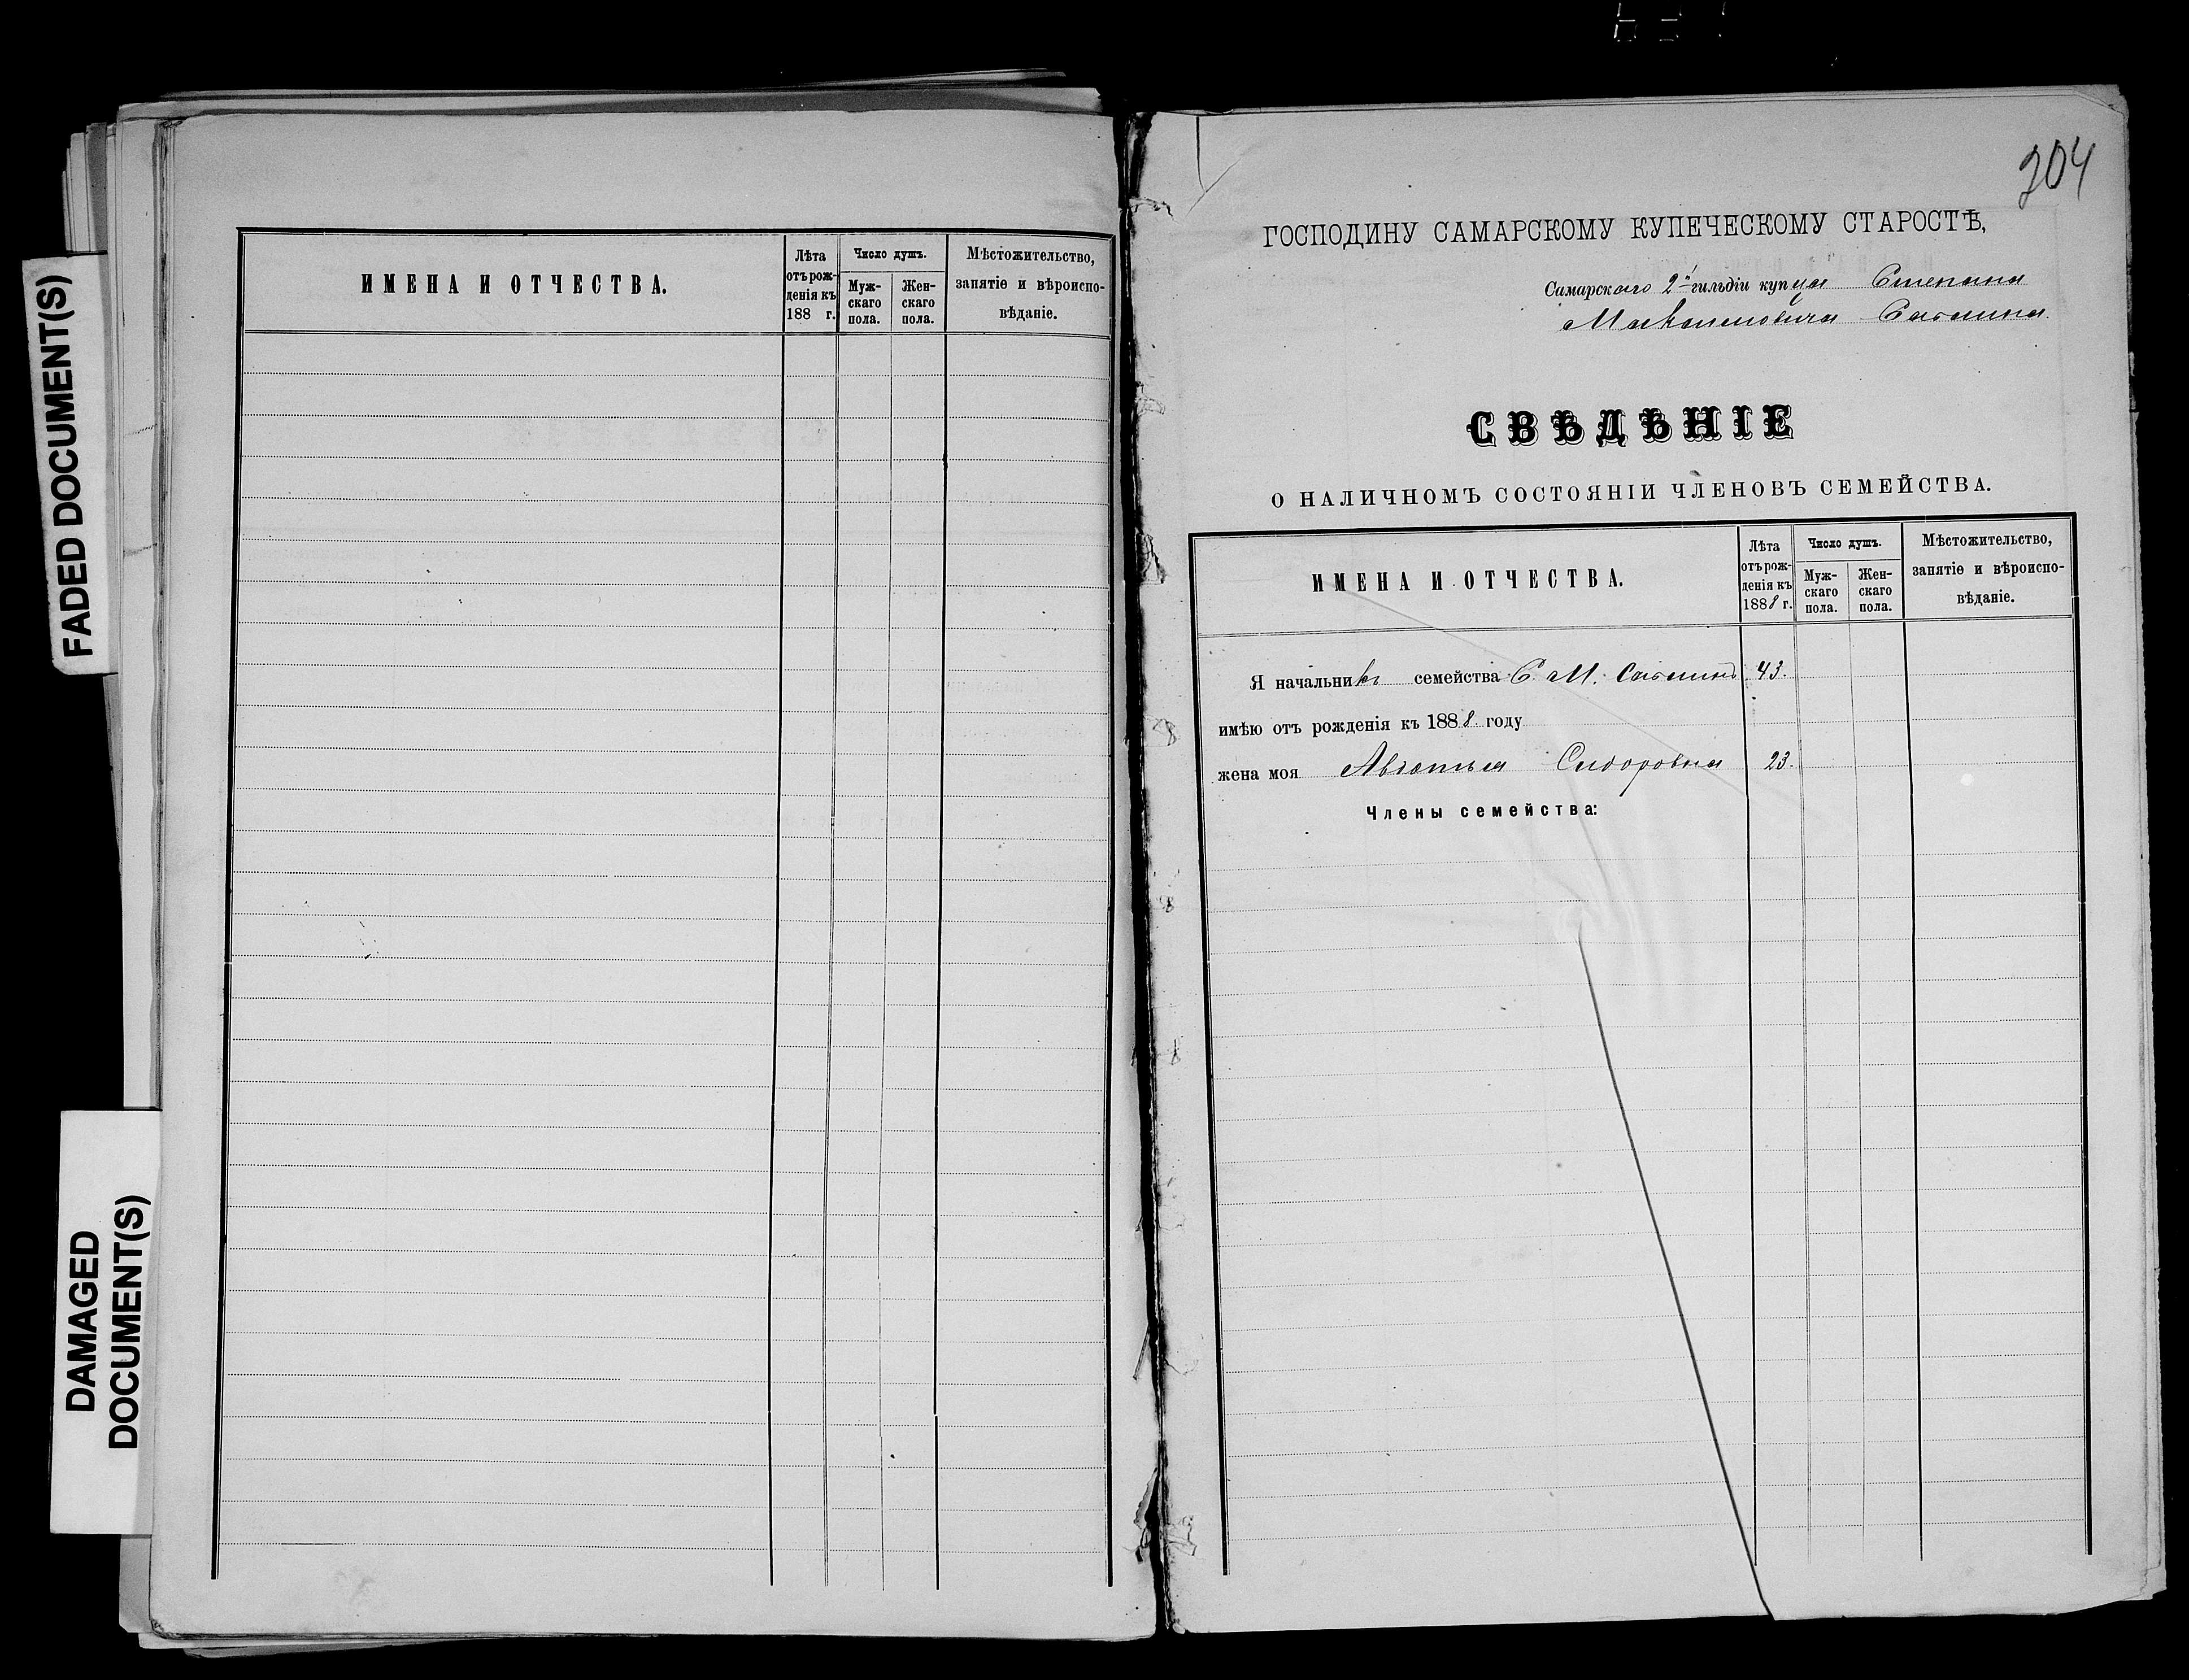 FADED DOCUMENT(S)
DAMAGED
DOCUMENT(S)
ИМЕНА И ОТЧЕСТВА.
Лѣта
отъ рож-
денія къ
188 г.
Число душъ.
Муж-
скаго
пола.
Жен-
скаго
пола.
Мѣстожительство,
занятіе и вѣроиспо-
вѣданіе.
204
ГОСПОДИНУ САМАРСКОМУ КУПЕЧЕСКОМУ СТАРОСТѢ,
Самарскаго 2й гильдіи купца Степана
СВѢДѢНІЕ
О НАЛИЧНОМЪ СОСТОЯНІИ ЧЛЕНОВЪ СЕМЕЙСТВА.
ИМЕНА И ОТЧЕСТВА.
Лѣта
отъ рож-
денія къ
1888 г.
Число душъ.
Муж-
скаго
пола.
Жен-
скаго
пола.
Мѣстожительство,
занятіе и вѣроиспо-
вѣданіе.
Я начальникъ семейства С. М. 43.
имѣю отъ рожденія къ 1888 году
жена моя Авдотья Сидоровна 23.
Члены семейства: